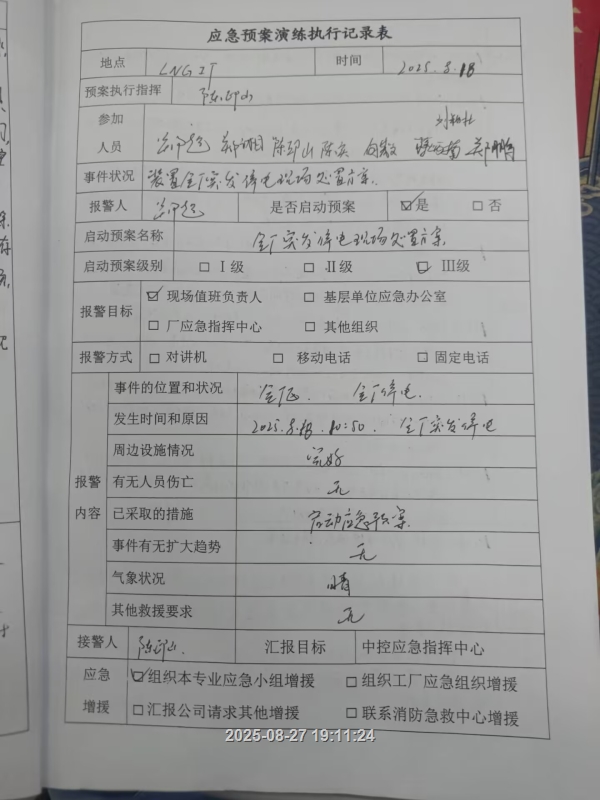 应急预案演练执行记录表
地点 LNG 2T 时间 2025.8.18
预案执行指挥 陈邱山
参加
人员 陈邱山
事件状况 装置全厂突发停电现场处置方案.
报警人 是否启动预案 ☑是 □否
启动预案名称 全厂突发停电现场处置方案.
启动预案级别 □Ⅰ级 □Ⅱ级 ☑Ⅲ级
报警目标 ☑现场值班负责人 □基层单位应急办公室
□厂应急指挥中心 □其他组织
报警方式 □对讲机 □移动电话 □固定电话
报警
内容
事件的位置和状况 全厂停电.
发生时间和原因 2025.8.18. 10:50. 全厂突发停电
周边设施情况 完好
有无人员伤亡 无
已采取的措施 启动应急预案.
事件有无扩大趋势 无
气象状况 晴
其他救援要求 无
接警人 陈邱山. 汇报目标 中控应急指挥中心
应急
增援
☑组织本专业应急小组增援 □组织工厂应急组织增援
□汇报公司请求其他增援 □联系消防急救中心增援
2025-08-27 19:11:24